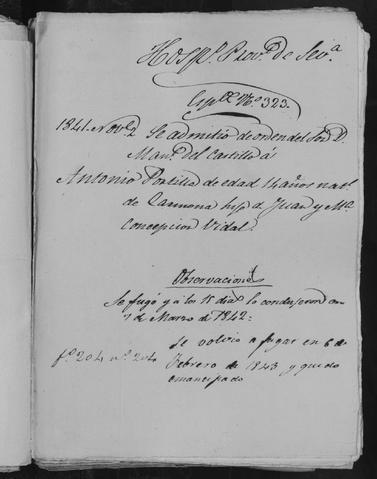 Hospº. Provl. de Sevª.
Espte. Nº 323.
1841. Nove. 2 Se admitió de orden del Sor. D.
Manl. del Castillo á
Antonio Portillo de edad 14 años natl.
de Carmona hijo d. Juan y Mª.
Concepcion Vidal.
Observaciones
Se fugó y á los 15 dias lo condujeron en
7 de Marzo de 1842=
Se volvio a fugar en 6 de
fº 204 nº 204
Febrero de 1843 y quedo
emancipado